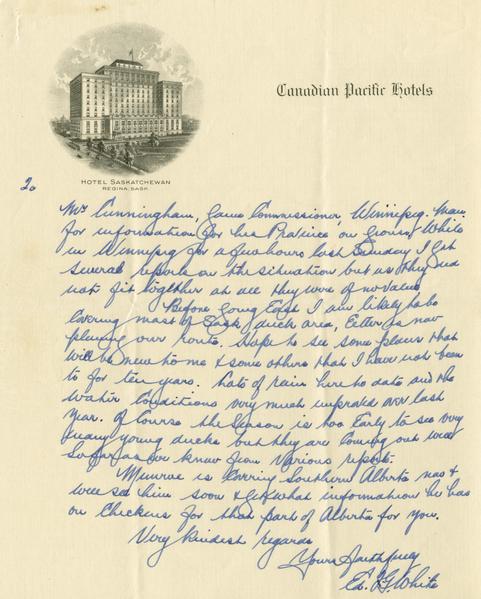 Canadian Pacific Hotels
HOTEL SASKATCHEWAN
REGINA, SASK.
2o
Mr Cunningham, Game Commissioner, Winnipeg. Man.
for information for his Province on going. While
in Winnipeg for a few hours last Sunday I got
several reports on the situation but as they did
not fit together at all they were of no value.
Before going East I am likely to be
covering most of Sask. duck area, is now
planning our route. Hope to see some places that
will be new to me & some others that I have not been
to for ten years. Lots of rain here to date and the
water conditions very much improved over last
Year. Of Course the Season is too Early to see very
many young ducks but they are Coming out well
so far as we know from Various reports.
Munroe is Covering Southern Alberta now &
will see him soon & get what information he has
on Checkers for that part of Alberta for you.
Very kindest regards
Yours faithfully
Ed. G. White